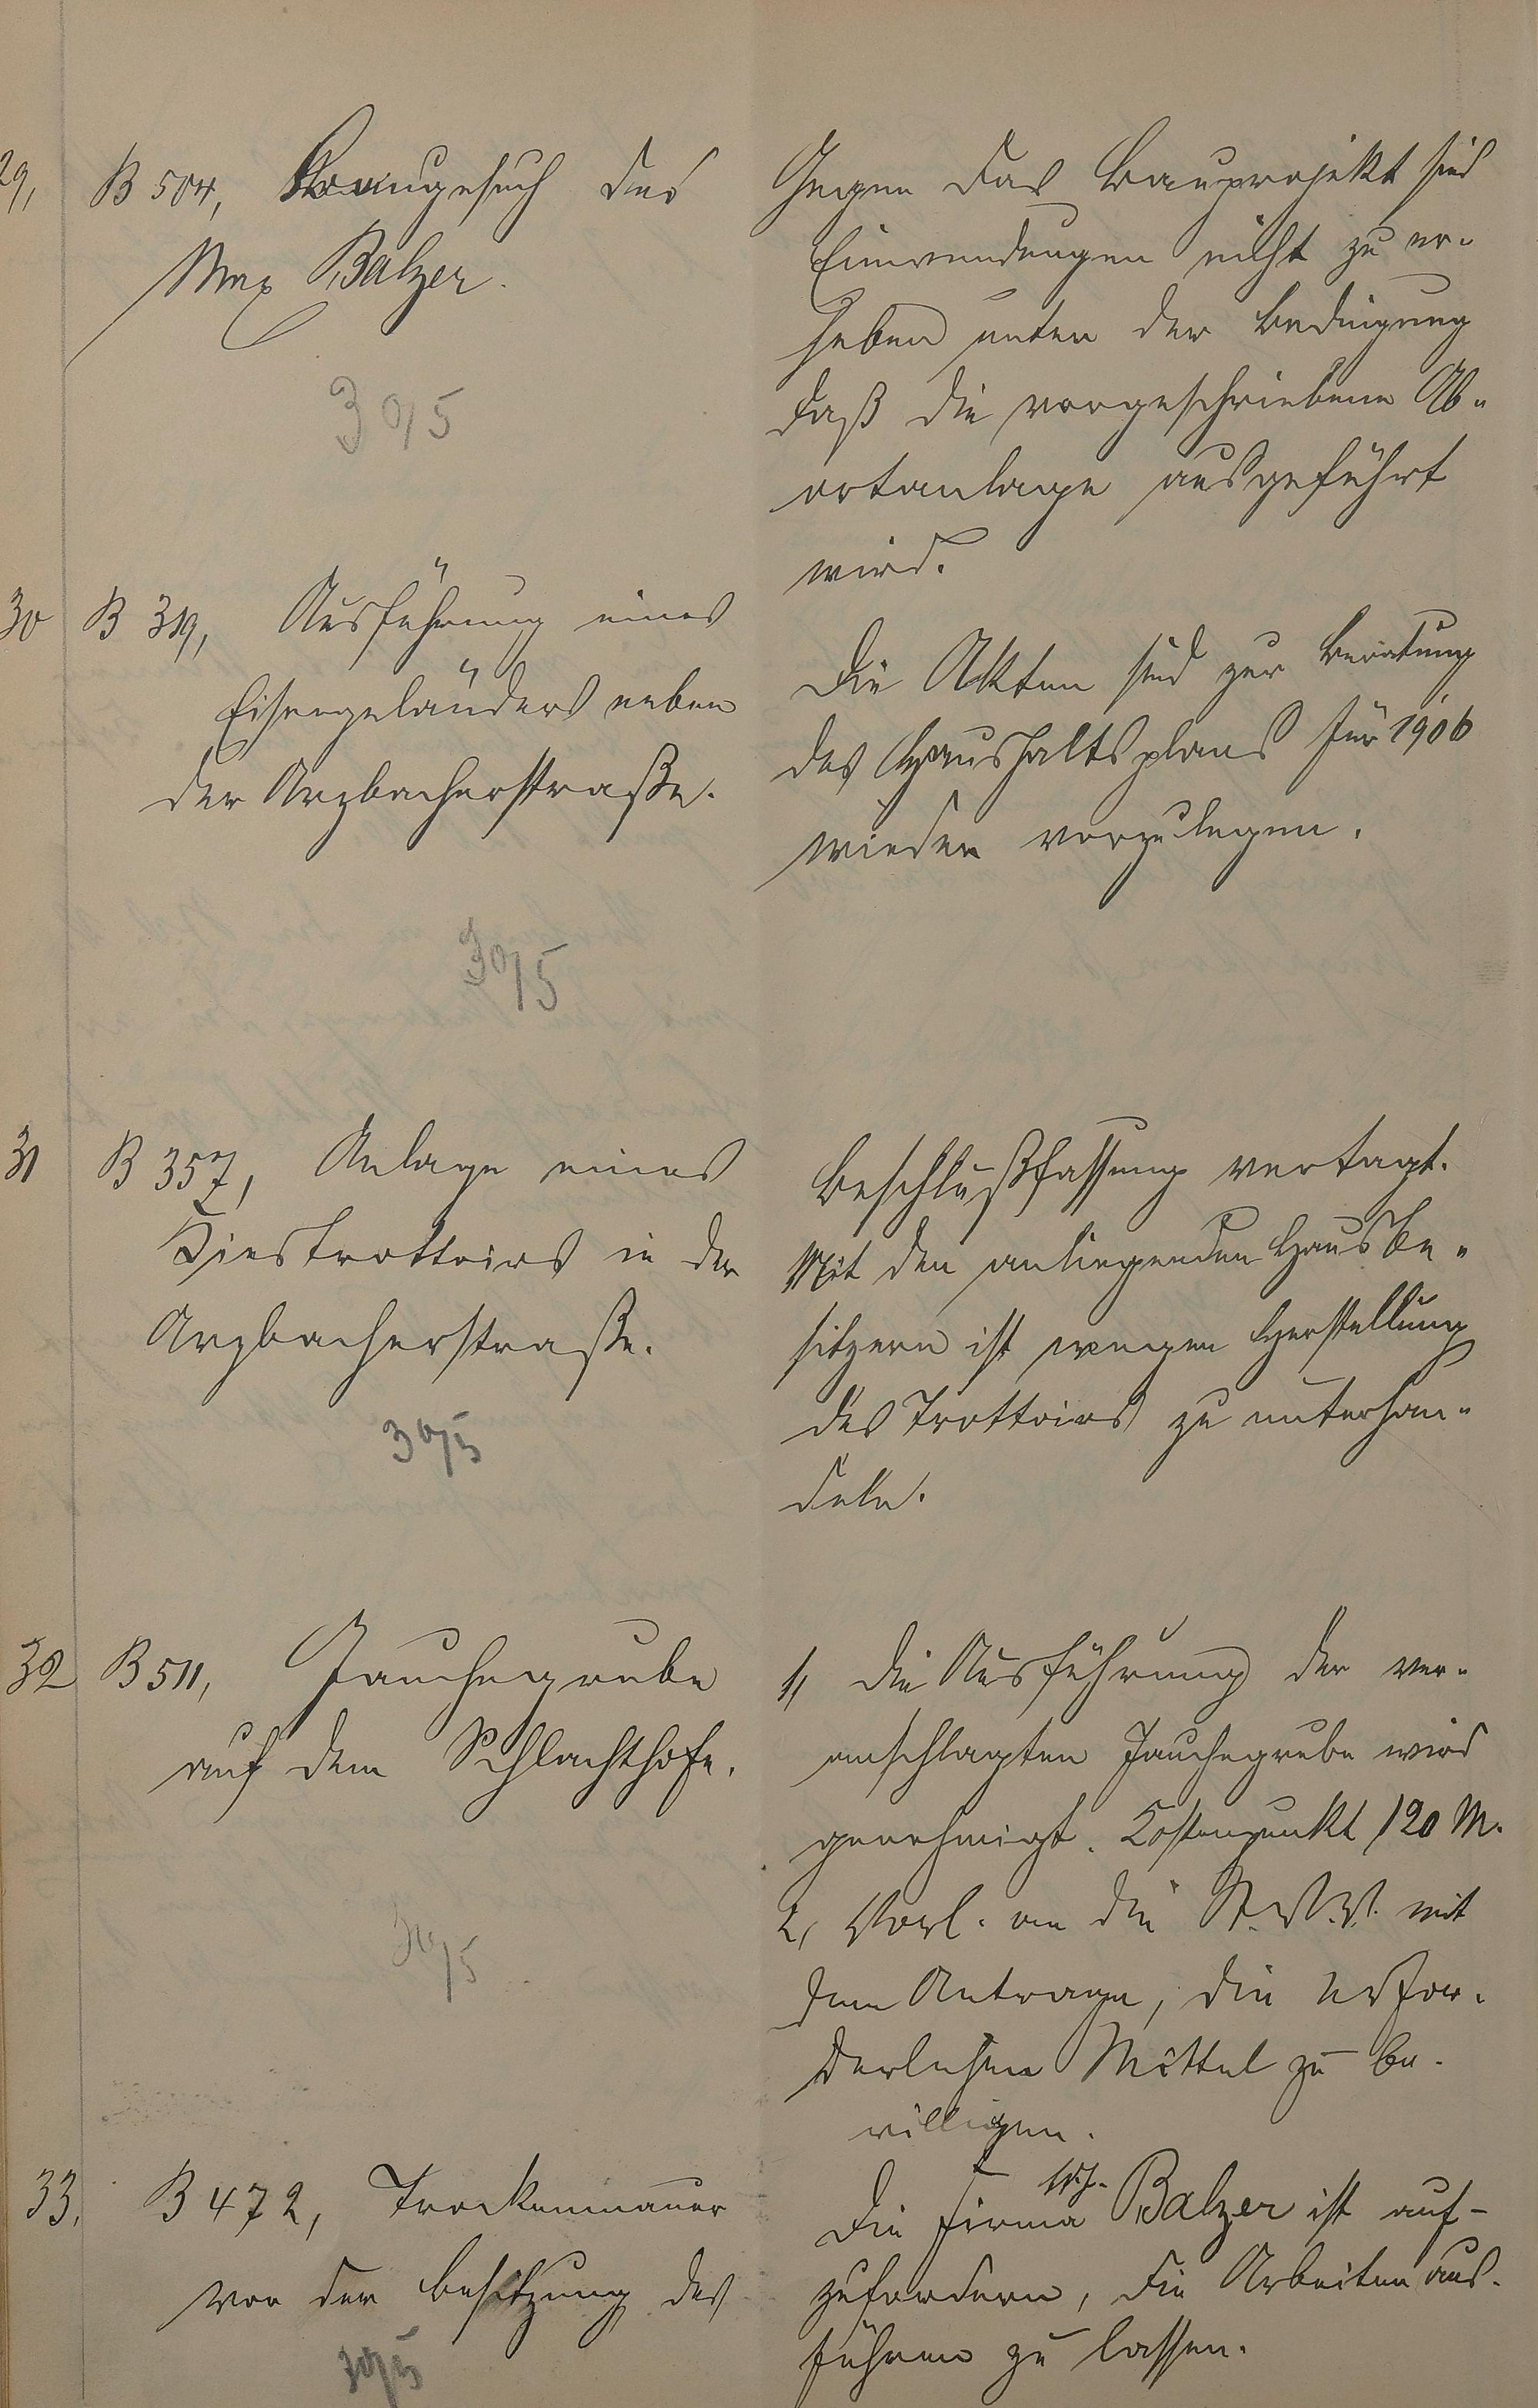 29,
B 504, Baugesuch des
Max Balzer.
30/5
Gegen das Bauprojekt sind
Einwendungen nicht zu er-
heben unter der Bedingung
daß die vorgeschriebene Ab-
ortanlage ausgeführt
wird.
30
B 319, Ausführung eines
Eisengeländers neben
der Arzbacherstraße.
30/5
Die Akten sind zur Beratung
des Haushaltsplans für 1906
wieder vorzulegen.
31
B 357, Anlage eines
Kiestrottoirs in der
Arzbacherstraße.
30/5
Beschlußfassung vertagt.
Mit den anliegenden Hausbe-
sitzern ist wegen Herstellung
des Trottoirs zu unterhan-
deln.
32
B 511, Jauchegrube
auf dem Schlachthofe.
30/5
1, Die Ausführung der ver-
anschlagten Jauchegrube wird
genehmigt. Kostenpunkt 120 M.
2, Vorl. an die St.V.V. mit
dem Antrage, die erfor-
derlichen Mittel zu be-
willigen.
33.
B 472, Trockenmauer
vor der Besitzung des
30/5
Die Firma Balzer ist auf-
zufordern, die Arbeiten aus-
führen zu lassen.